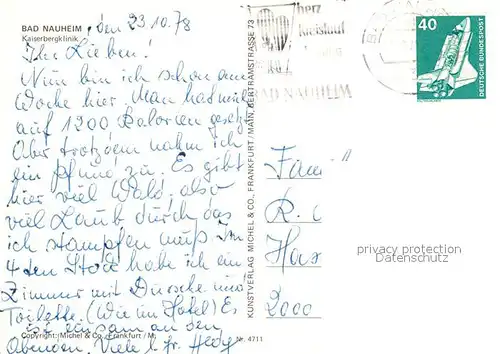 BAD NAUHEIM, den 23.10.78
Kaiserbergklinik
Ihr Lieben!
Nun bin ich schon am
Woche hier. Man hat mich
auf 1200 Kalorien gesetz
Aber trotzdem nahm ich
ein Pfund zu. Es gibt
hier viel Wald, also
viel Laub durch das
ich stampfen muß. Im
4 ten Stock habe ich ein
Zimmer mit Dusche und
Toilette. (Wie im Hotel) Es
ist einsam an den
Abenden. Viele l. Gr.
Copyright: Michel & Co., Frankfurt / M.
Nr. 4711
KUNSTVERLAG MICHEL & CO., FRANKFURT / MAIN, BERTRAMSTRASSE 73
herz
Kreislauf
BAD NAUHEIM
40
DEUTSCHE BUNDESPOST
Fami
2000
privacy protection
Datenschutz